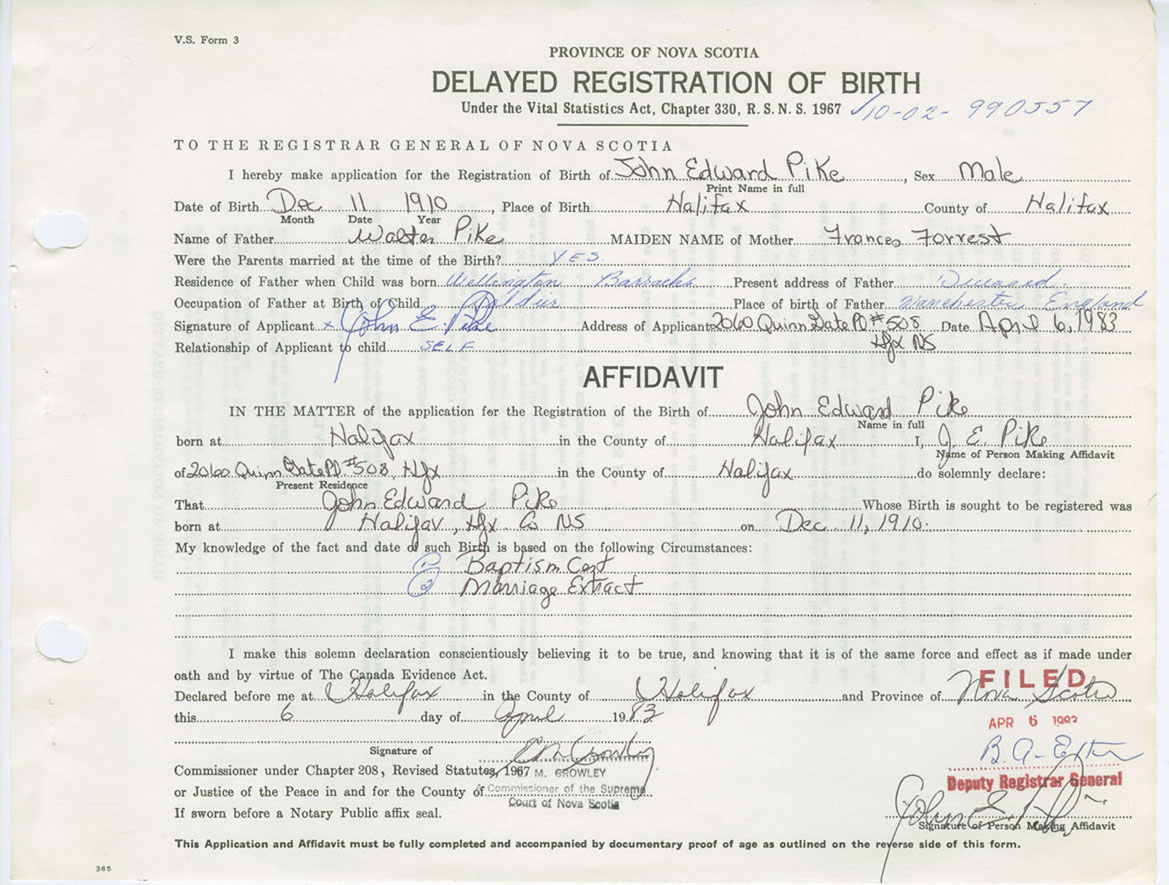 V.S. Form 3
PROVINCE OF NOVA SCOTIA
DELAYED REGISTRATION OF BIRTH
Under the Vital Statistics Act, Chapter 330, R.S.N.S. 1967 10-02-990557
TO THE REGISTRAR GENERAL OF NOVA SCOTIA
I hereby make application for the Registration of Birth of John Edward Pike, Sex Male
Print Name in full
Date of Birth Dec 11 1910, Place of Birth Halifax County of Halifax
Month Date Year
Name of Father Walter Pike MAIDEN NAME of Mother Frances Forrest
Were the Parents married at the time of the Birth? YES
Residence of Father when Child was born Wellington Barracks Present address of Father Deceased
Occupation of Father at Birth of Child Place of birth of Father Manchester England
Signature of Applicant x John E. Pike Address of Applicant 2060 Quinn Gate Pl #508 Date April 6, 1983
Hfx NS
Relationship of Applicant to child SELF
AFFIDAVIT
IN THE MATTER of the application for the Registration of the Birth of John Edward Pike
Name in full
born at Halifax in the County of Halifax I, J. E. Pike
Name of Person Making Affidavit
of 2060 Quinn Gate Pl. #508, Hfx in the County of Halifax do solemnly declare:
Present Residence
That John Edward Pike Whose Birth is sought to be registered was
born at Halifax, Hfx Co NS on Dec 11, 1910.
My knowledge of the fact and date of such Birth is based on the following Circumstances:
1 Baptism Cert
2 Marriage Extract
I make this solemn declaration conscientiously believing it to be true, and knowing that it is of the same force and effect as if made under
oath and by virtue of The Canada Evidence Act.
FILED
Declared before me at Halifax in the County of Halifax and Province of Nova Scotia
this 6 day of April 1983
APR 6 1983
Signature of
Commissioner under Chapter 208, Revised Statutes, 1967 M. CROWLEY
Deputy Registrar General
or Justice of the Peace in and for the County of A Commissioner of the Supreme
Court of Nova Scotia
If sworn before a Notary Public affix seal.
Signature of Person Making Affidavit
This Application and Affidavit must be fully completed and accompanied by documentary proof of age as outlined on the reverse side of this form.
365